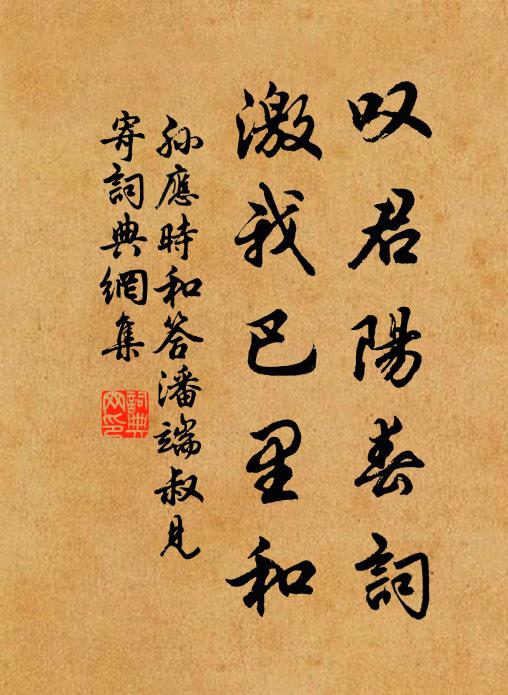 叹君陽春詞
激我巴里和
孫應時和答潘端叔見
寄詞典網集
詞典
网印